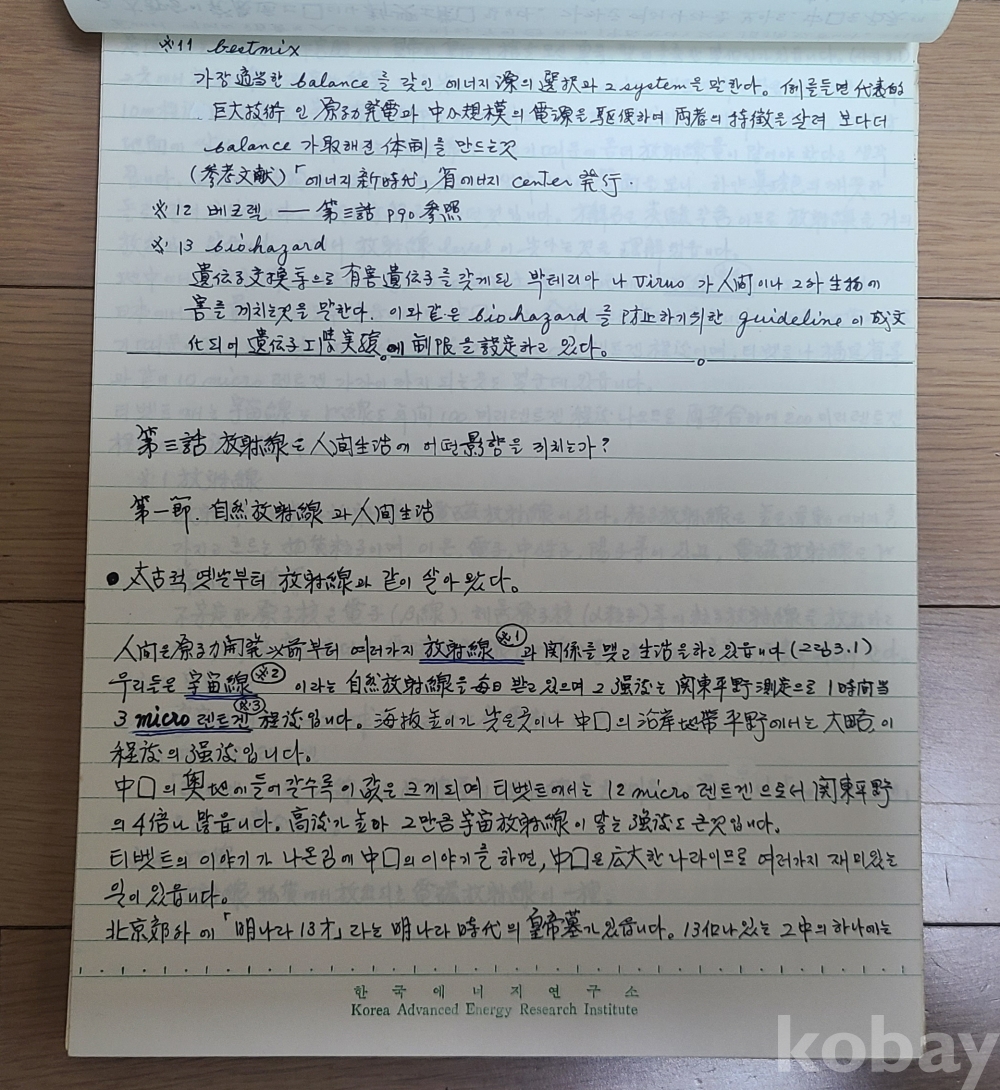 ※11 bestmix
가장 適当한 balance 를 갖인 에너지源의 選択과 그 system을 말한다. 例를들면 代表的
巨大技術 인 原子力発電과 中小規模의 電源을 駆使하여 両者의 特徴을 살려 보다더
balance 가 取해진 体制를 만드는것
(参考文献)「에너지 新時代」省에너지 center 発行.
※12 베크렐 — 第三話 p90 参照
※13 biohazard
遺伝子交換등으로 有害遺伝子를 갖게된 박테리아 나 Virus 가 人間이나 그外 生物에
害를 끼치는것을 말한다. 이와같은 biohazard 를 防止하기위한 guideline 이 成文
化되어 遺伝子工学実験에 制限을 設定하고 있다。
第三話 放射線은 人間生活에 어떤影향을 끼치는가?
第一節. 自然放射線 과 人間生活
● 太古적 옛날부터 放射線과 같이 살아 왔다。
人間은 原子力開発以前부터 여러가지 放射線 ※1 과 関係를 맺고 生活을 하고 있읍니다 (그림3.1)
우리들은 宇宙線 ※2 이라는 自然放射線을 毎日 받고 있으며 그 强度는 関東平野 測定으로 1時间当
3 micro 렌트겐 ※3 程度입니다。海抜높이가 낮은곳이나 中口의 沿岸地帯 平野에서는 大略 이
程度의 强度입니다。
中口의 奥地에 들어 갈수록 이 값은 크게되며 티벳트에서는 12 micro 렌트겐 으로서 関東平野
의 4倍나 많읍니다。高度가 높아 그만큼 宇宙放射線이 닿는 强度도 큰것입니다。
티벳트의 이야기가 나온김에 中口의 이야기를 하면, 中口은 広大한 나라이므로 여러가지 재미있는
일이 있읍니다。
北京郊外 에 「明나라 13才」라는 明나라 時代의 皇帝墓가 있읍니다。13個나 있는 그中의 하나에는
한 국 에 너 지 연 구 소
Korea Advanced Energy Research Institute
kobay